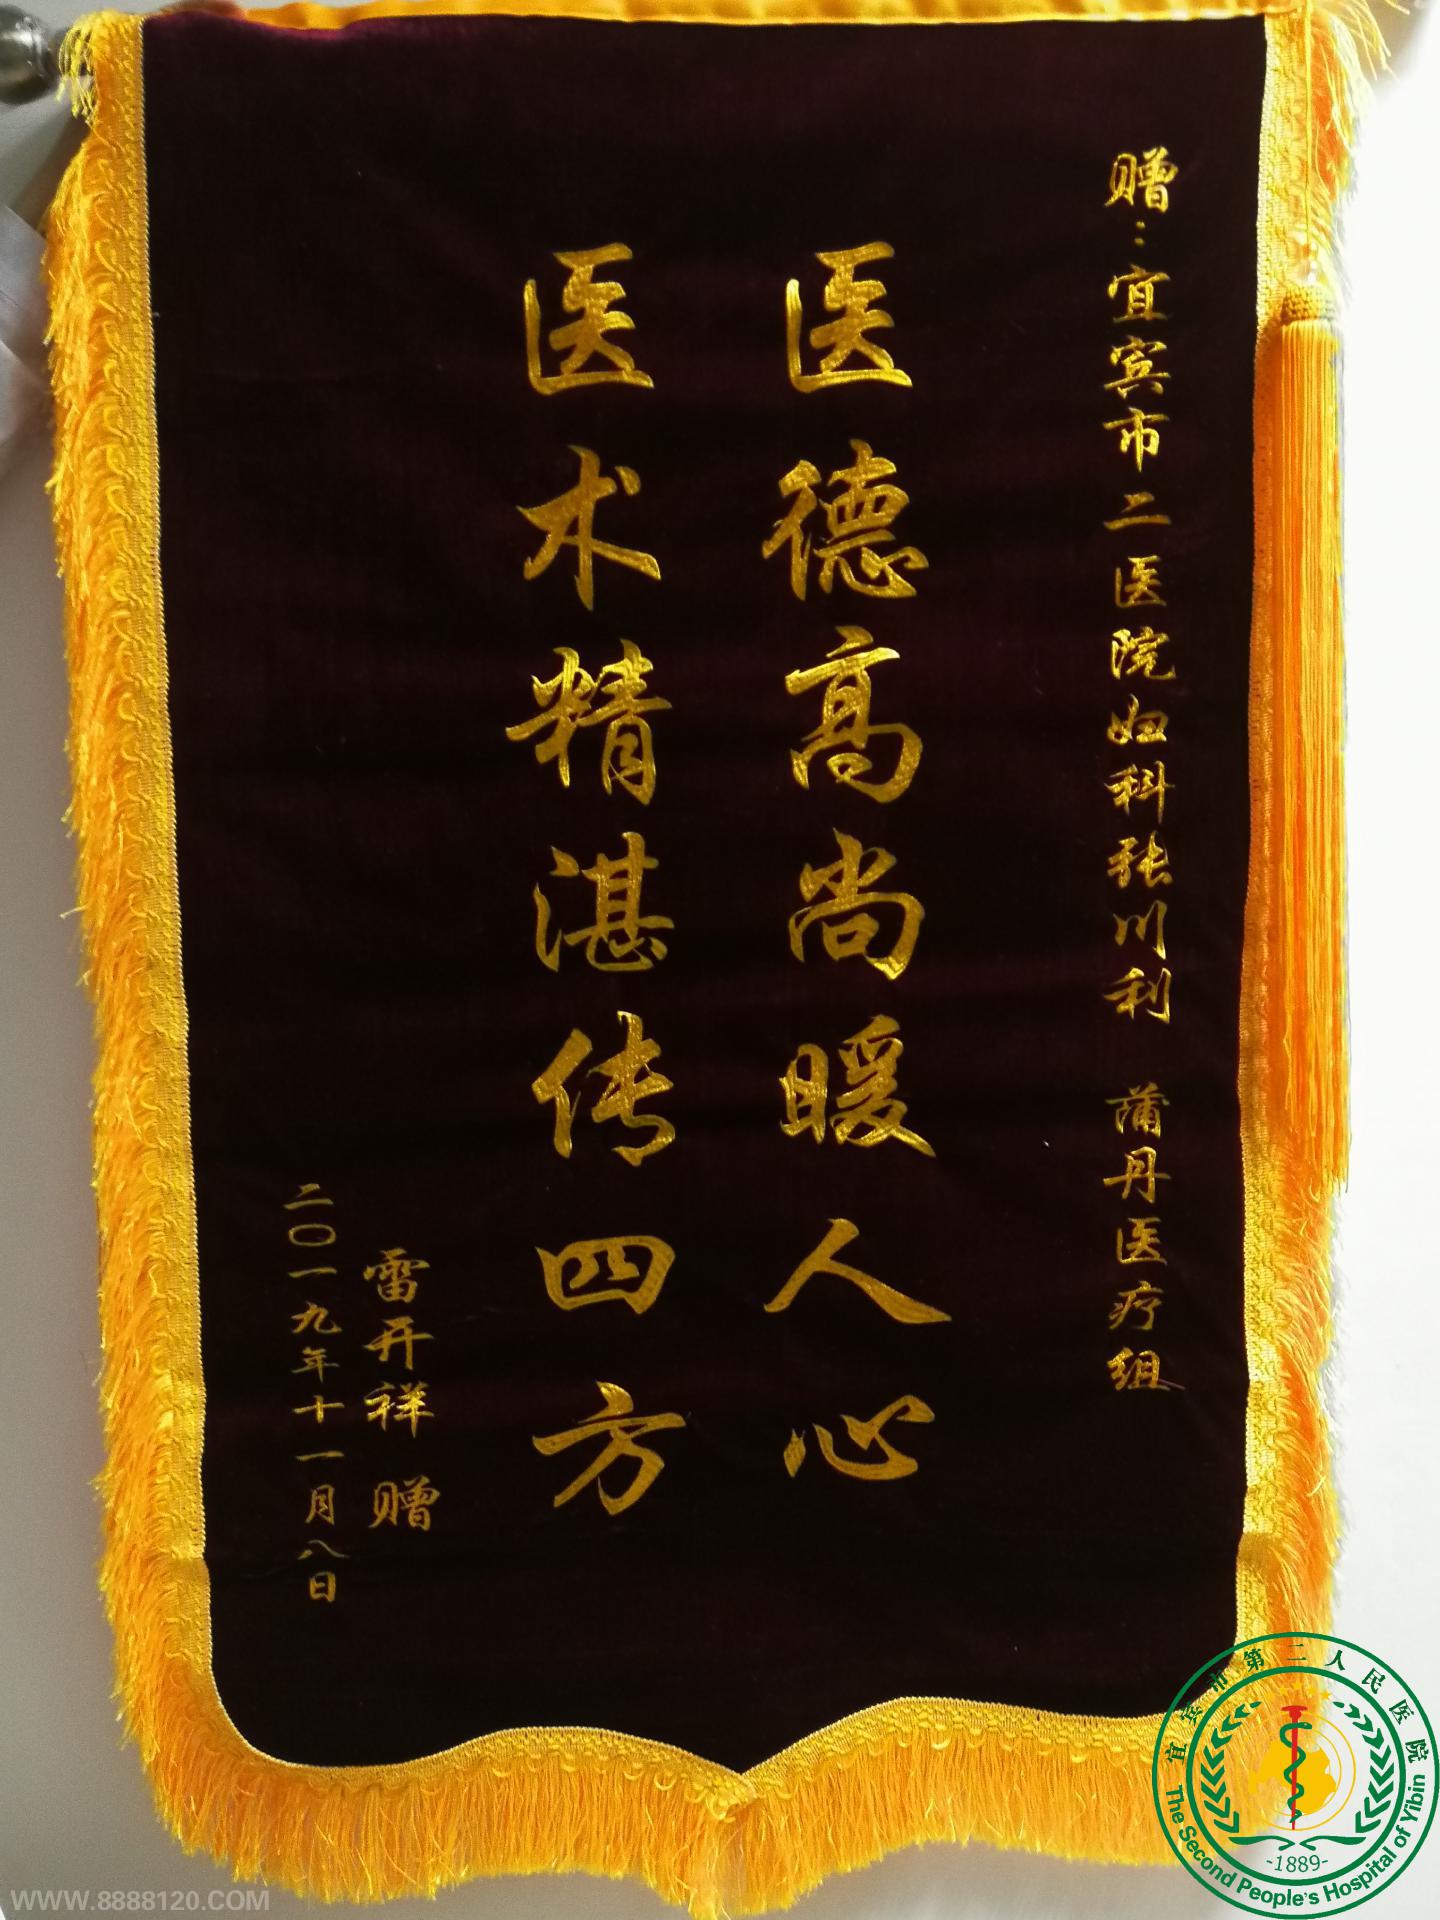 赠：宜宾市二医院妇科张川利 蒲丹医疗组
医德高尚暖人心
医术精湛传四方
雷开祥 赠
二〇一九年十一月八日
宜宾市第二人民医院
-1889-
The Second People's Hospital of Yibin
WWW.8888120.COM